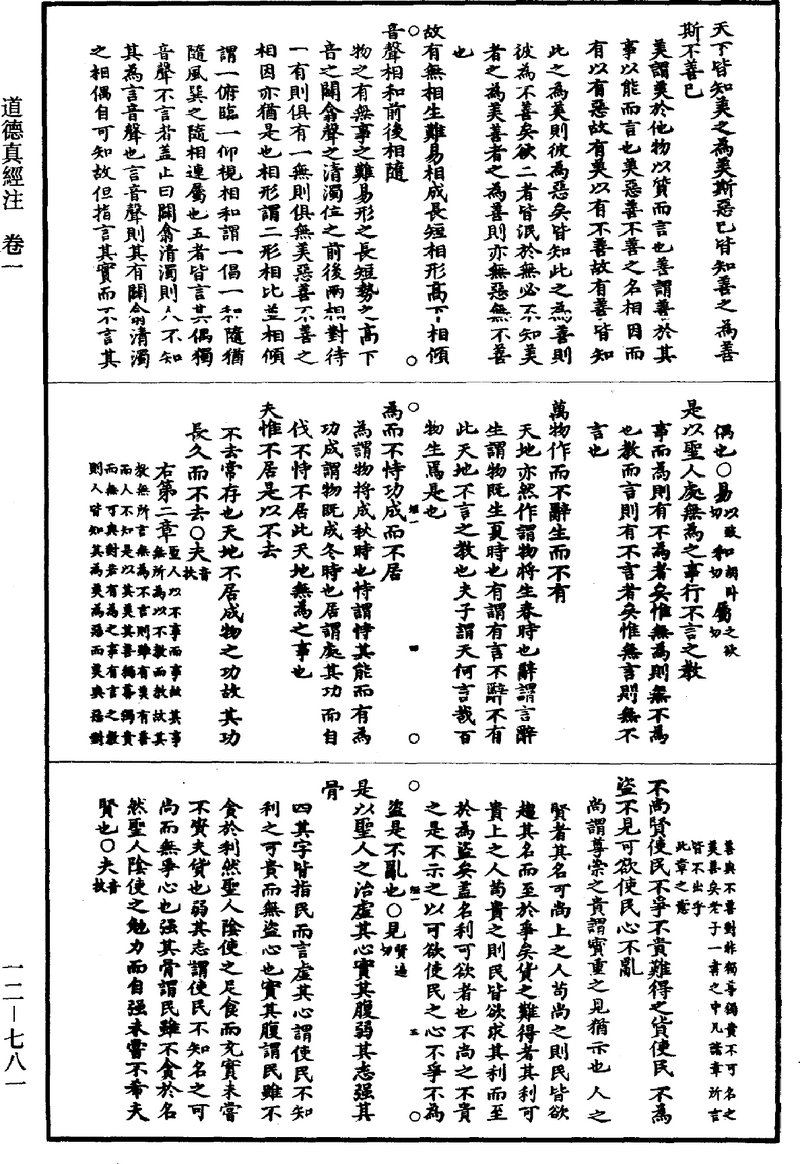 道德真經注　卷一
一二—七八一
天下皆知美之為美斯惡已皆知善之為善
斯不善已
美謂美於他物以質而言也善謂善於其
事以能而言也美惡善不善之名相因而
有以有惡故有美以有不善故有善皆知
此之為美則彼為惡矣皆知此之為善則
彼為不善矣欲二者皆泯於無必不知美
者之為美善者之為善則亦無惡無不善
也
故有無相生難易相成長短相形高下相傾
音聲相和前後相隨
物之有無事之難易形之長短勢之高下
音之闢翕聲之清濁位之前後兩相對待
一有則俱有一無則俱無美惡善不善之
相因亦猶是也相形謂二形相比並相傾
謂一俯臨一仰視相和謂一倡一和隨猶
隨風巽之隨相連屬也五者皆言其偶獨
音聲不言者蓋止曰闢翕清濁則人不知
其為言音聲也言音聲則其有闢翕清濁
之相偶自可知故但指言其實而不言其
偶也○易以豉切和胡卧切屬之欲切
是以聖人處無為之事行不言之教
事而為則有不為者矣惟無為則無不為
也教而言則有不言者矣惟無言則無不
言也
萬物作而不辭生而不有
天地亦然作謂物將生春時也辭謂言辭
生謂物既生夏時也有謂有言不辭不有
此天地不言之教也夫子謂天何言哉百
物生焉是也
為而不恃功成而不居
為謂物將成秋時也恃謂恃其能而有為
功成謂物既成冬時也居謂處其功而自
伐不恃不居此天地無為之事也
夫惟不居是以不去
不去常存也天地不居成物之功故其功
長久而不去○夫音扶
右第二章聖人以不事而事故其事
無所為以不教而教故其
教無所言無為不言則雖有美有善
而人不知是以其美其善獨尊獨貴
而無可與對若有為之事有言之教
則人皆知其為美為善而美與惡對
善與不善對非獨尊獨貴不可名之
美善矣老子一書之中凡諸章所言
皆不出乎
此章之意
不尚賢使民不爭不貴難得之貨使民不為
盜不見可欲使民心不亂
尚謂尊崇之貴謂寶重之見猶示也人之
賢者其名可尚上之人苟尚之則民皆欲
趨其名而至於爭矣貨之難得者其利可
貴上之人苟貴之則民皆欲求其利而至
於為盜矣蓋名利可欲者也不尚之不貴
之是不示之以可欲使民之心不爭不為
盜是不亂也○見賢遍切
是以聖人之治虛其心實其腹弱其志强其
骨
四其字皆指民而言虛其心謂使民不知
利之可貴而無盜心也實其腹謂民雖不
貪於利然聖人陰使之足食而充實未嘗
不資夫貨也弱其志謂使民不知名之可
尚而無爭心也强其骨謂民雖不貪於名
然聖人陰使之勉力而自强未嘗不希夫
賢也○夫音扶